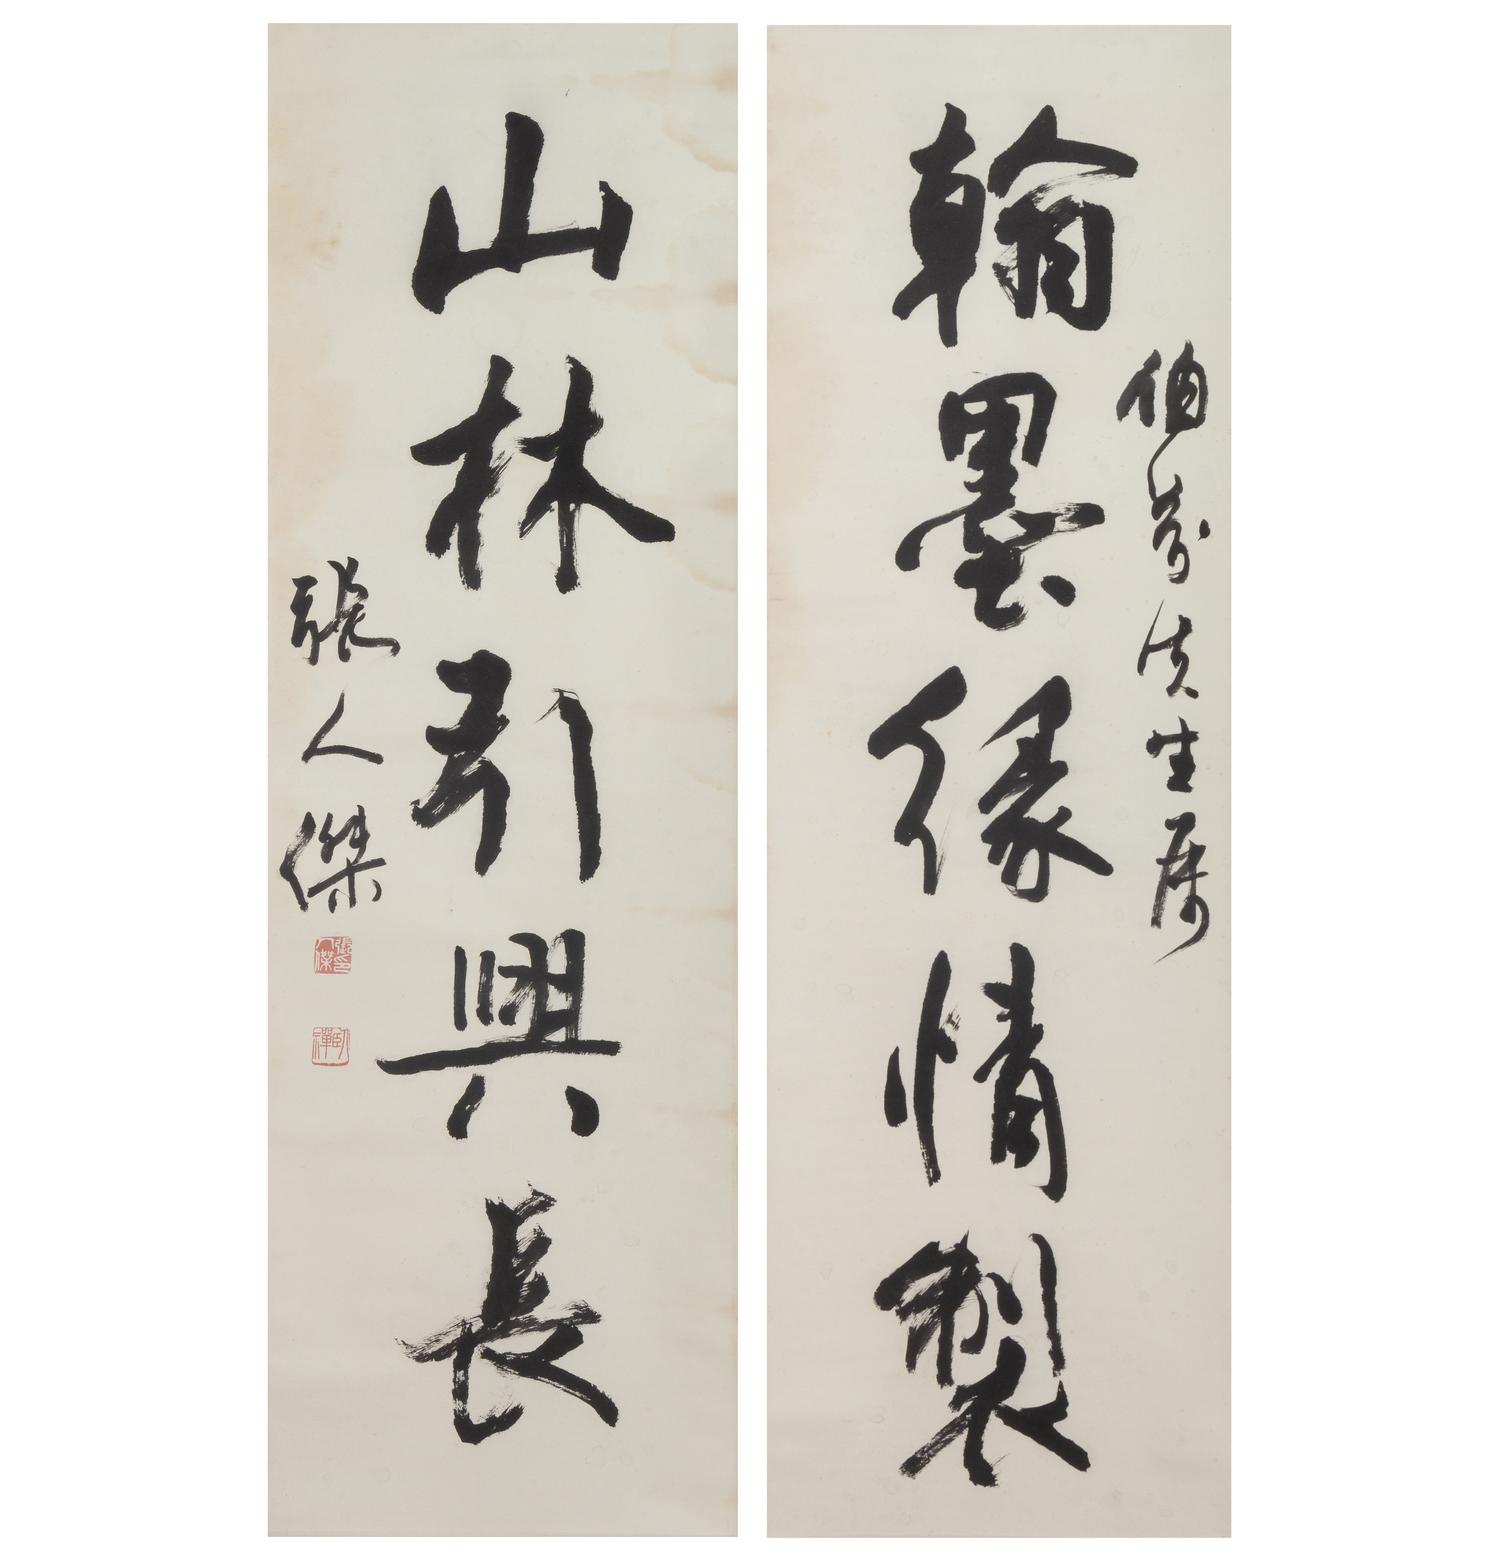 伯芳先生属
翰墨緣情製
山林引興長
張人傑
張人傑印
臥禪